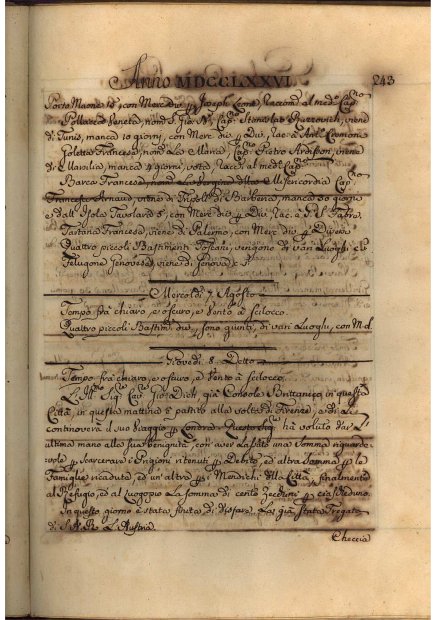 Anno MDCCLXXVI. 243
Porto Maone 18, con Merc. div. Joseph Leone, Raccom. al med. Cap.
Pollacca Veneta, nom. S. Gio. N., Cap. Stanislao, viene
di Tunis, manca 10 giorni, con Merc. div. Div., Rac. a Cremona
Goletta Francese, nom. La Maria, Cap. Pietro, viene
di Marsilia, manca 4 giorni, vota, Rac. al med. Cap.
Barca Francese, nom. La Vergine della Misericordia Cap.
Francesco Arnaud, viene di Tripoli di Barberia, manca 30 giorni
e dall' Isola Tavolara 5, con Merc. div. Div. Rac. a Fabre.
Tartana Francese, viene di Palermo, con Merc. div. Diversi
Quattro piccoli Bastimenti Toscani, vengono di vari Luoghi, e
Felugone Genovese, viene di Genova
Mercoldi 7. Agosto
Tempo frà chiaro, e oscuro, e Vento à scilocco.
Quattro piccoli Bastim. div. sono giunti, di vari Luoghi, con M. d.
Giovedi 8. Detto
Tempo frà chiaro, e oscuro, e Vento à scilocco.
L'Ill. Sig. Cav. Gio. Dick, già Console Brittanico in questa
Città, in questa mattina è partito alla volta di Firenze, e di là
continoverà il suo Viaggio Londra. Questo Sig. hà voluto dar l'
ultima mano alla sua benignità, con aver La somma riguarde-
vole scarcerare i Prigioni ritenuti Debito, ed altra somma le
Famiglie ricadute, ed un'altra Mendichi della Città, finalmente
al Refugio, ed al Luogo pio La somma di cento Zecchini
In questo giorno è stata finita di disfare, La già stata Fregata
di S. A. R. L'Austria.
Checcia